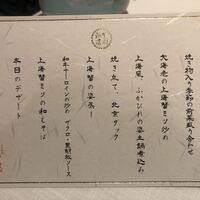 焼き物入り季節の前菜盛り合わせ
大海老の上海蟹ミソ炒め
上海風、ふかひれの姿土鍋煮込み
焼き立て、北京ダック
上海蟹の姿蒸し
和牛サーロインの炒め ザクロ・黒胡椒ソース
上海蟹ミソの和えそば
本日のデザート